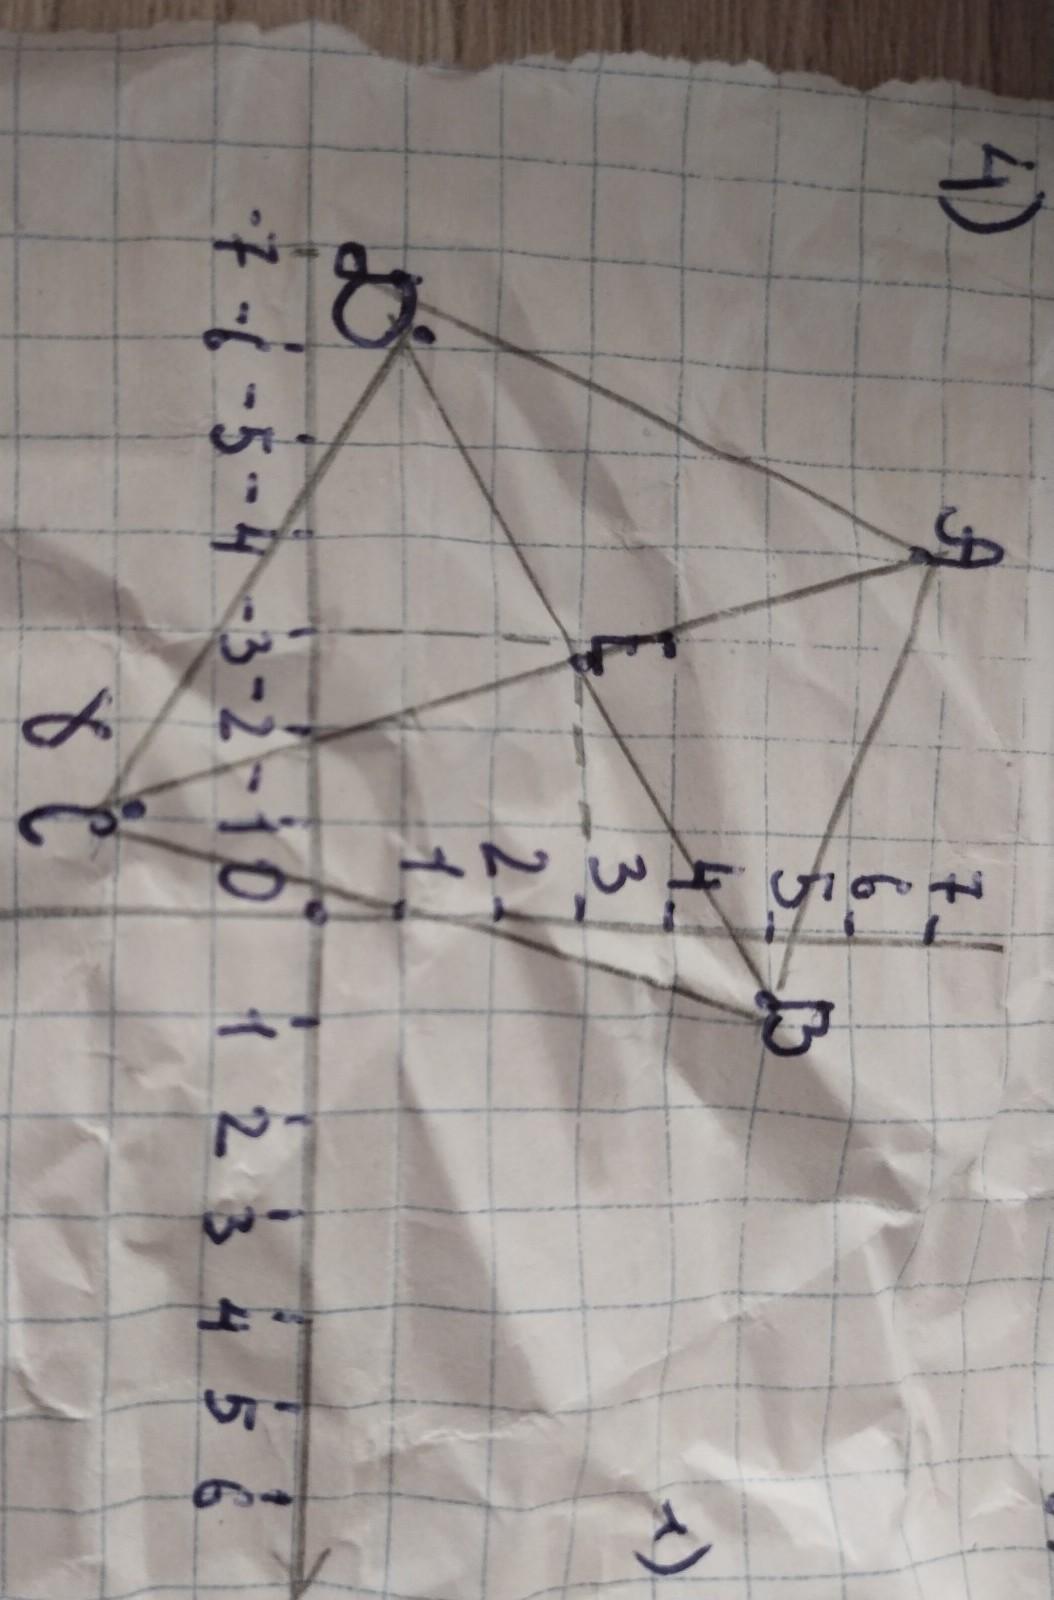 4)
A
7
6
5
B
4
E
3
2
1
D
-7 -6 -5 -4 -3 -2 -1 0 1 2 3 4 5 6
C